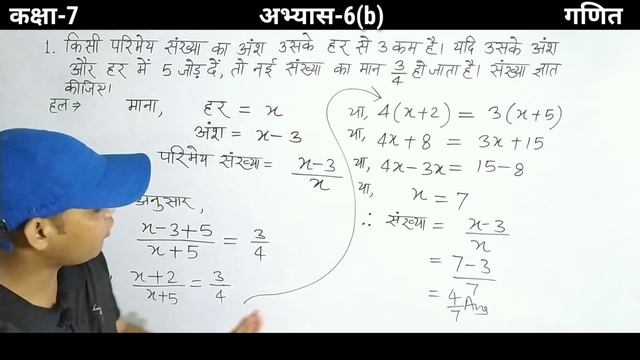 कक्षा-7 अभ्यास-6(b) गणित
1. किसी परिमेय संख्या का अंश उसके हर से 3 कम है। यदि उसके अंश
और हर में 5 जोड़ दें, तो नई संख्या का मान 3/4 हो जाता है। संख्या ज्ञात
कीजिए।
हल⇒ माना, हर = x
अंश = x-3
परिमेय संख्या = x-3/x
अनुसार,
x-3+5/x+5 = 3/4
x+2/x+5 = 3/4
या, 4(x+2) = 3(x+5)
या, 4x+8 = 3x+15
या, 4x-3x = 15-8
या, x = 7
∴ संख्या = x-3/x
= 7-3/7
= 4/7 Ans